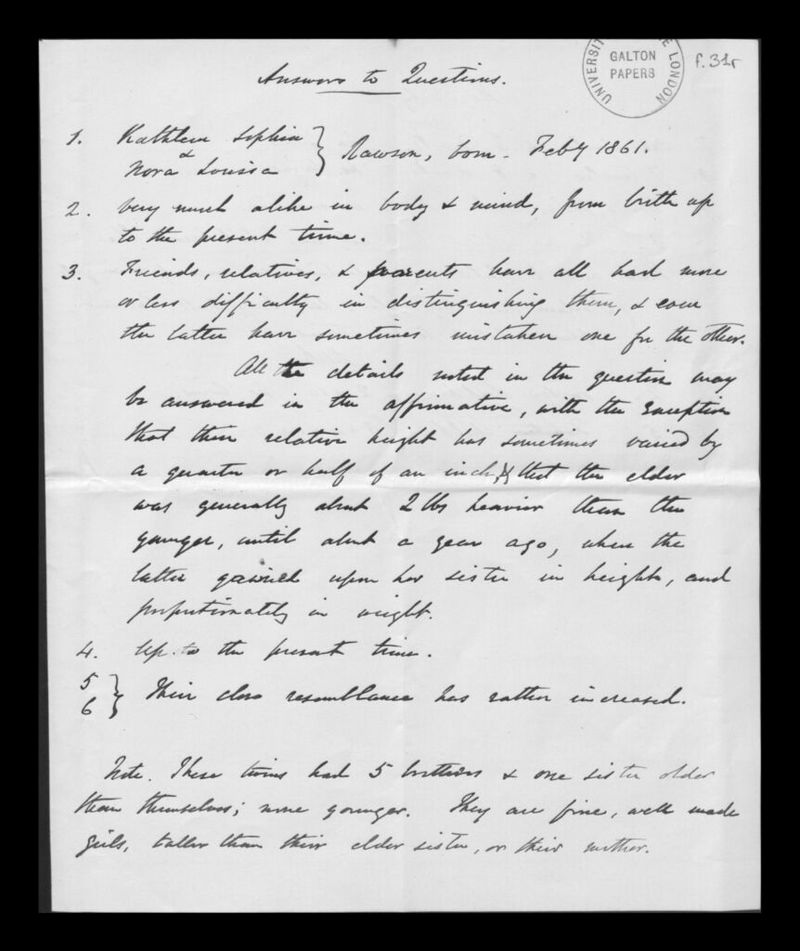 UNIVERSITY COLLEGE LONDON
GALTON
PAPERS
f. 31r
Answers to Questions.
1. Kathleen Sophia
&
Nora Louisa
} Rawson, born. Feby 1861.
2. Very much alike in body & mind, from birth up
to the present time.
3. Friends, relatives, & parents have all had more
or less difficulty in distinguishing them, & even
the latter have sometimes mistaken one for the other.
All the details noted in the question may
be answered in the affirmative, with the exception
that their relative height has sometimes varied by
a quarter or half of an inch, & that the elder
was generally about 2 lbs heavier than the
younger, until about a year ago, when the
latter gained upon her sister in height, and
proportionately in weight.
4. Up to the present time.
5
6 } Their close resemblance has rather increased.
Note. These twins had 5 brothers & one sister older
than themselves; none younger. They are fine, well made
girls, taller than their elder sister, or their mother.